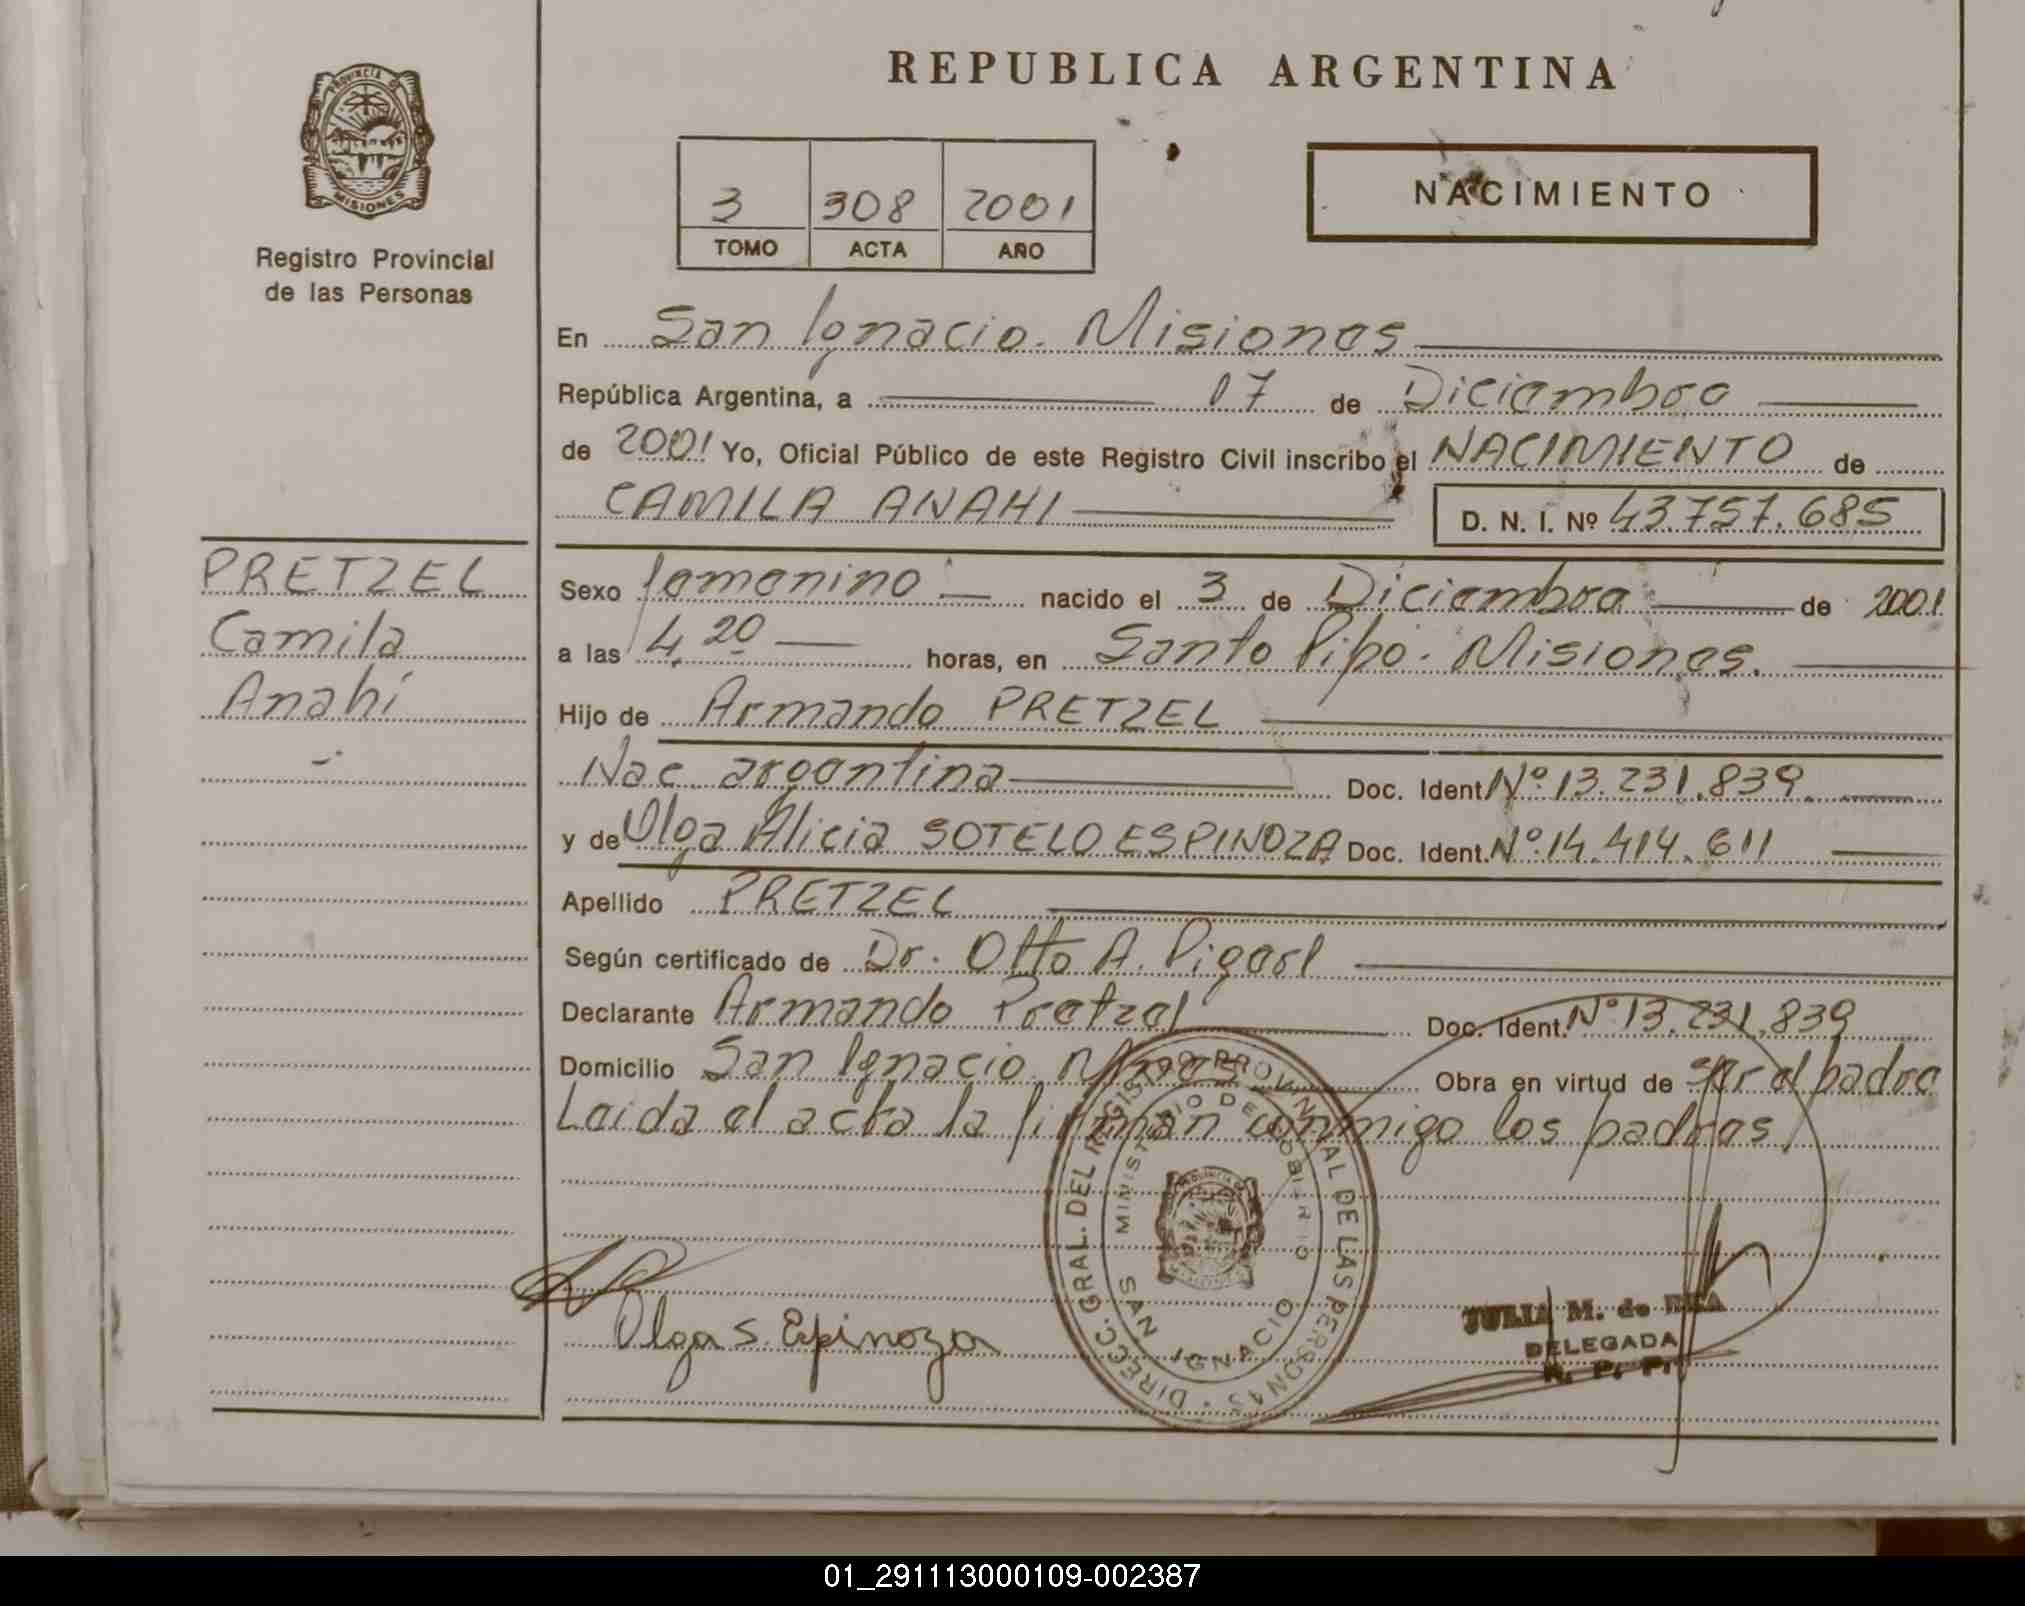 REPUBLICA ARGENTINA
PROVINCIA DE
MISIONES
Registro Provincial
de las Personas
3 308 2001
TOMO ACTA AÑO
NACIMIENTO
En San Ignacio. Misiones
República Argentina, a 07 de Diciembre
de 2001 Yo, Oficial Público de este Registro Civil inscribo el NACIMIENTO de
CAMILA ANAHI D. N. I. Nº 43.757.685
PRETZEL
Camila
Anahí
Sexo femenino nacido el 3 de Diciembre de 2001
a las 4,20 horas, en Santo Pipó. Misiones.
Hijo de Armando PRETZEL
Nac argentina Doc. Ident. Nº 13.231.839
y de Olga Alicia SOTELO ESPINOZA Doc. Ident. Nº 14.414.611
Apellido PRETZEL
Según certificado de Dr. Otto A.
Declarante Armando Pretzel Doc. Ident. Nº 13.231.839
Domicilio San Ignacio Mnes Obra en virtud de ser el padre
Leida el acta la firman conmigo los padres
DIRECC. GRAL. DEL REGISTRO PROVINCIAL DE LAS PERSONAS
MINISTERIO DE GOBIERNO
SAN IGNACIO
Olga S. Espinoza
JULIA M. de
DELEGADA
R. P. P.
01_291113000109-002387